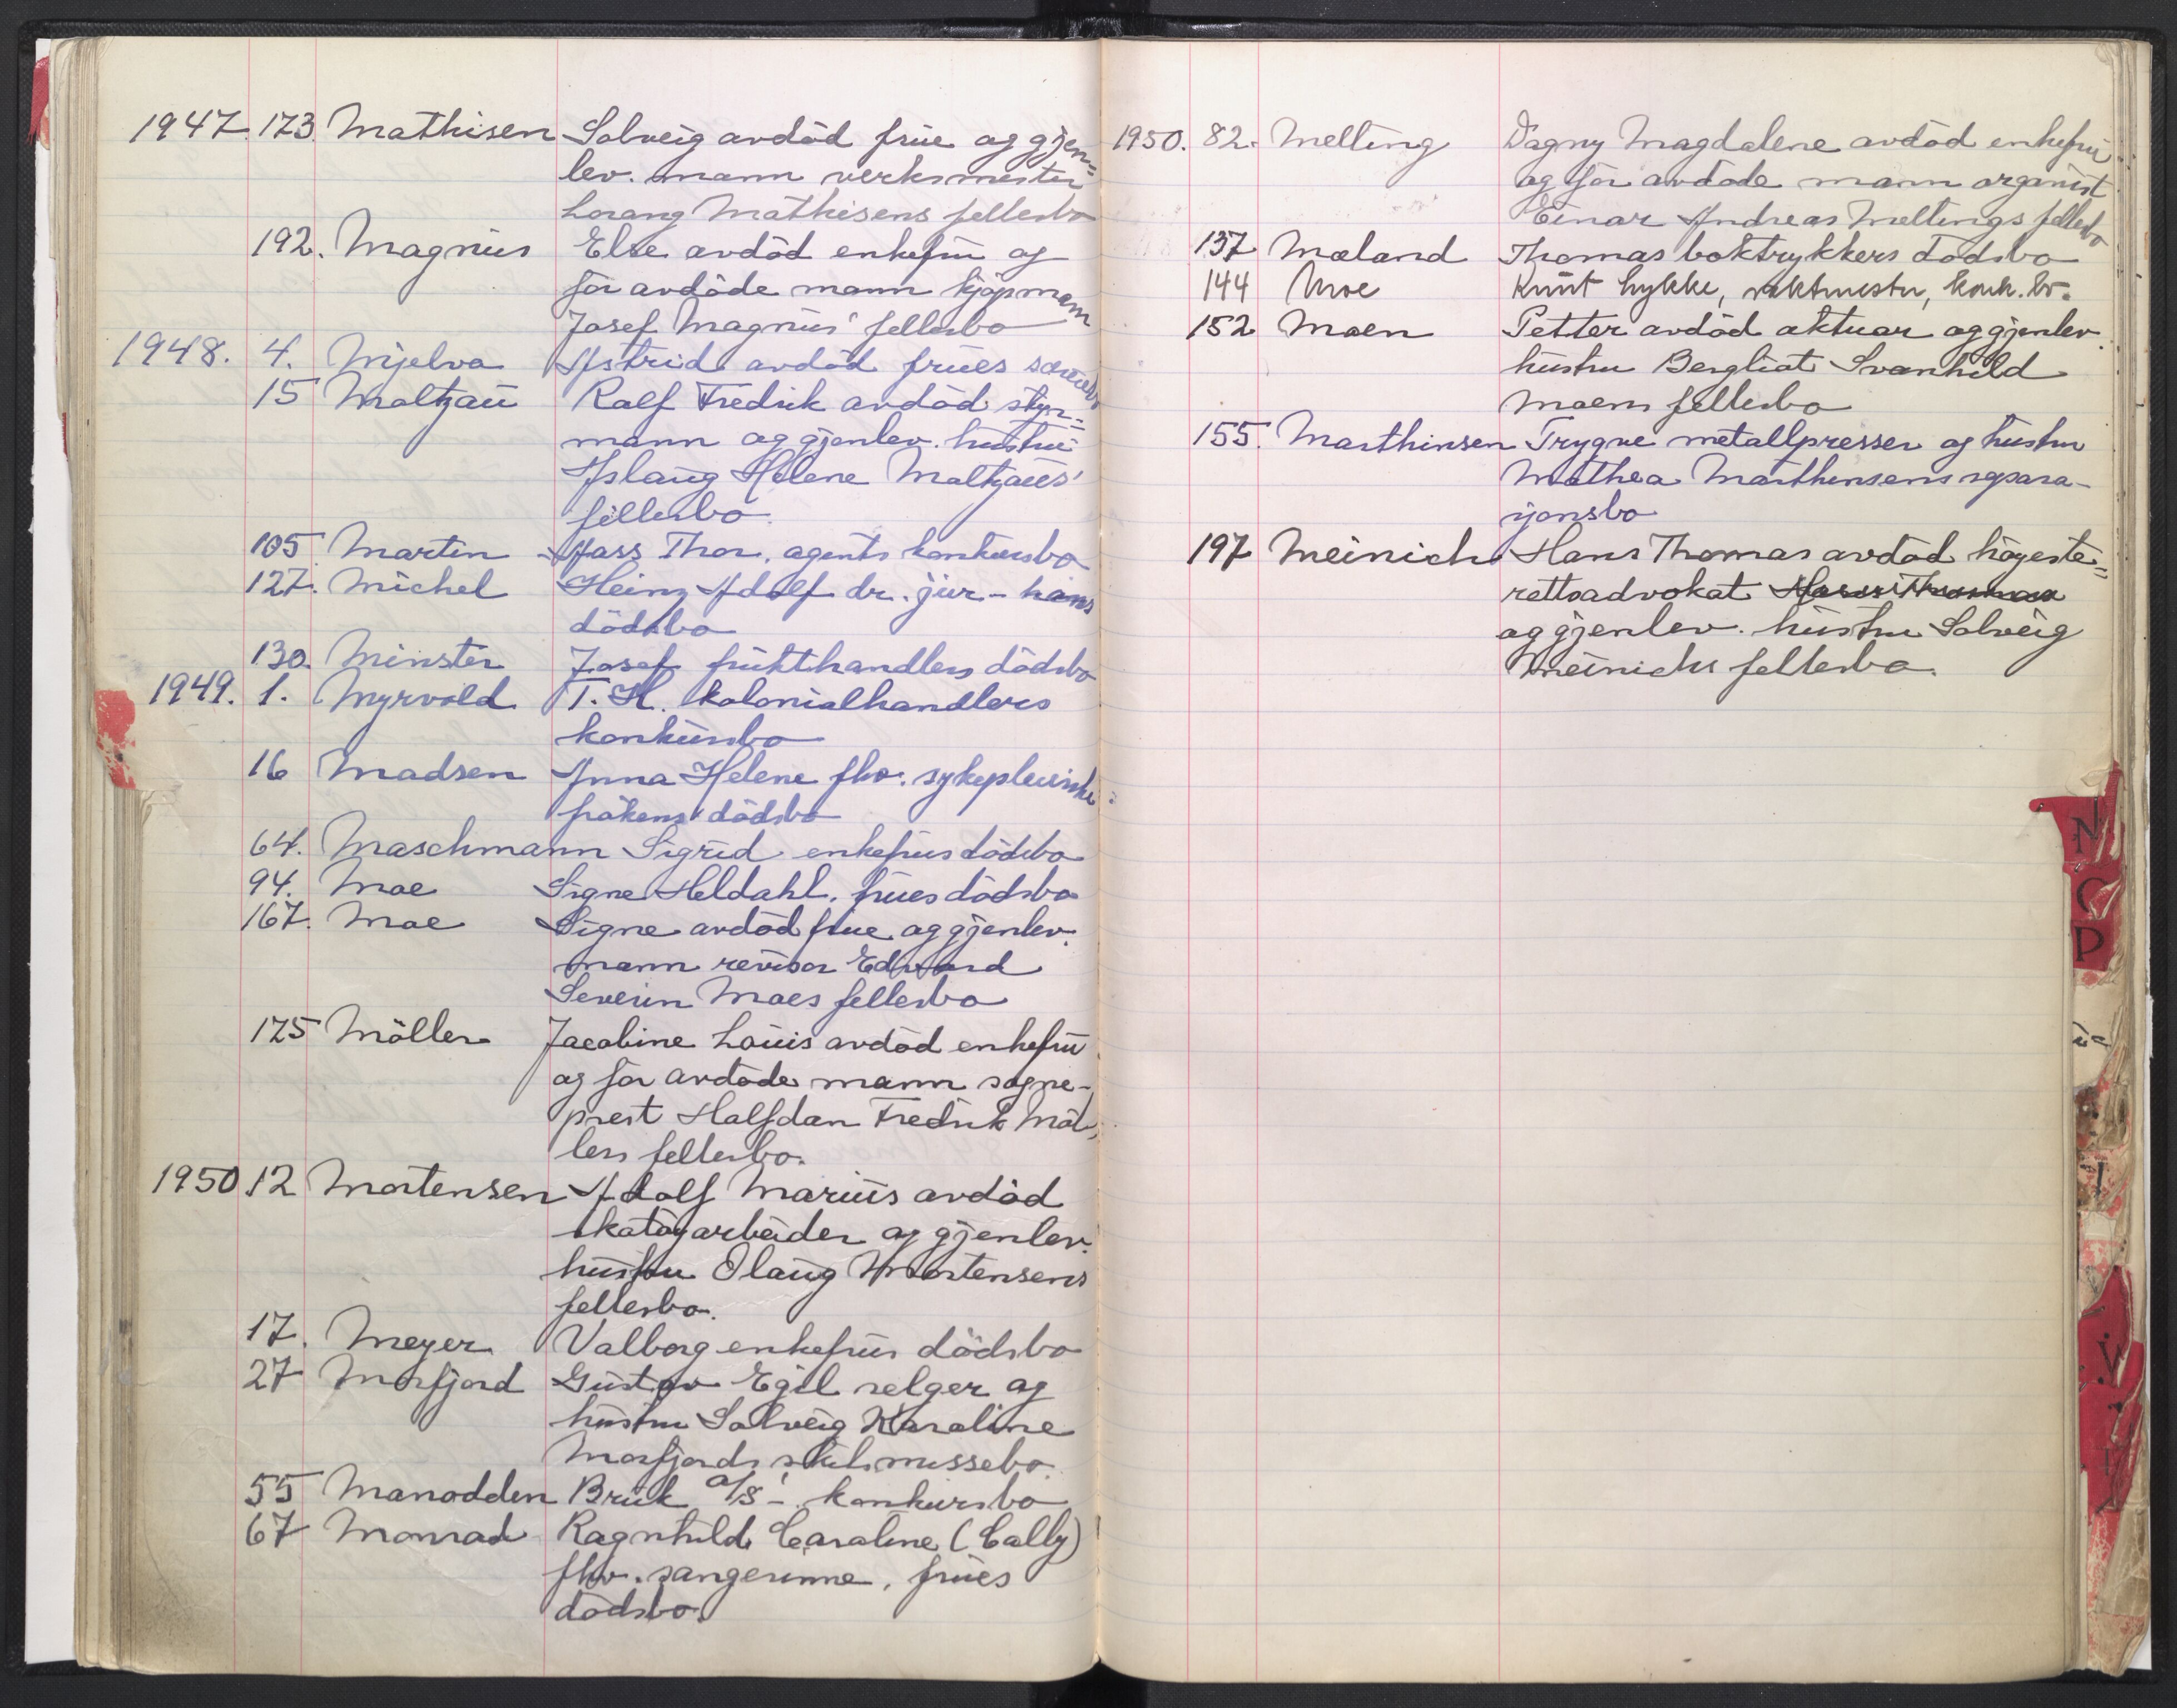 1947. 173. Mathisen Solveig avdöd frue og gjen=
lev. mann verksmester
Lorang Mathisens fellesbo
192. Magnus Else avdöd enkefru og
för avdöde mann kjöpmann
Josef Magnus' fellesbo
1948. 4. Mjelva Astrid avdöd frues særbo
15 Maltzau Ralf Fredrik avdöd styr=
mann og gjenlev. hustru
Aslaug Helene Maltzaus'
fellesbo
105 Martin Hass Thor, agents konkursbo
127. Michel Heinz Adolf dr. jur - hans
dödsbo
130. Minster Josef frukthandlers dödsbo
1949. 1. Myrvold T. H. kolonialhandlers
konkursbo
16 Madsen Anna Helene fhv. sykepleierske
frökens dödsbo
64. Maschmann Sigrid enkefrus dödsbo
94. Moe Signe Heldahl, frues dödsbo
167. Moe Signe avdöd frue og gjenlev.
mann revisor Edvard
Severin Moes fellesbo
175 Möller Jacobine Louis avdöd enkefru
og för avdöde mann sogne-
prest Halfdan Fredrik Möl-
lers fellesbo.
1950 12 Mortensen Adolf Marius avdöd
skotöyarbeider og gjenlev.
hustru Olaug Mortensens
fellesbo.
17. Meyer Valborg enkefrus dödsbo
27 Morfjord Gustav Egil selger og
hustru Solveig Karoline
Morfjords skilsmissebo.
55 Manodden Bruk a/s - konkursbo
67 Monrad Ragnhild Caroline (Cally)
fhv. sangerinne, frues
dödsbo.
1950. 82. Melting Dagny Magdalene avdöd enkefru
og för avdöde mann organist
Einar Andreas Meltings fellesbo
137 Mæland Thomas boktrykkers dödsbo
144 Moe Knut Lykke, vaktmester, konk.bo.
152 Moen Petter avdöd aktuar og gjenlev.
hustru Bergliot Svanhild
Moens fellesbo
155. Marthinsen Trygve metallpresser og hustru
Mathea Marthinsens separa-
sjonsbo
197 Meinich Hans Thomas avdöd höyeste=
rettsadvokat Hans Thomas
og gjenlev. hustru Solveig
Meinichs fellesbo.
N
O
P